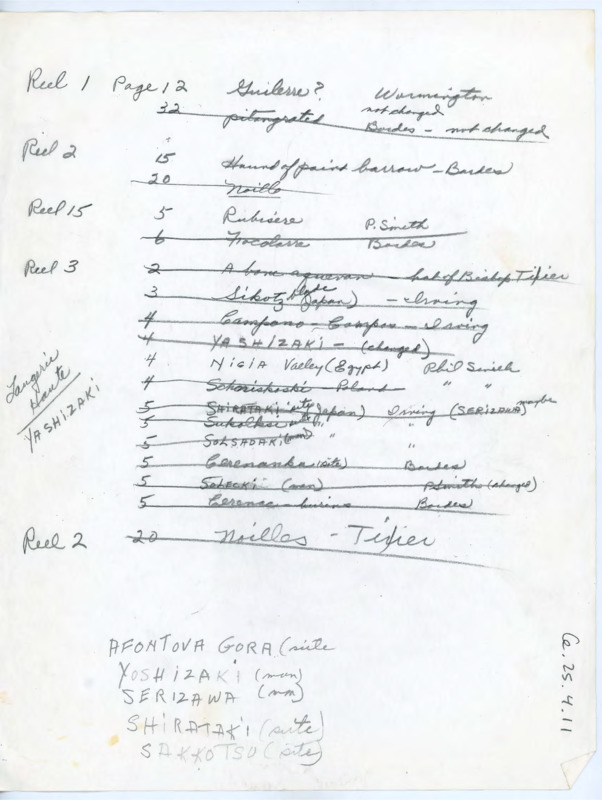 Reel 1 Page 12 Guilerre? Wormington
32 pitongrated not changed
Bordes - not changed
Reel 2 15 Hound of paint barrow - Bordes
20 Noille
Reel 15 5 Rubisere P. Smith
6 Trocolarre Bordes
Reel 3 2 A bone aqueran - hat of Bishop Tixier
3 Sikotz Clyde (Japan) - Irving
4 Campono, Campus - Irving
4 YASHIZAKI - (changed)
4 NIGIA Valley (Egypt) Phil Smith
4 Poland " "
5 SHIRATAKI site (Japan) Irving (SERIZAWA) maybe
5 " "
5 SOLSADAKI (man) " "
5 (site) Bordes
5 SOLECKI (man) P. Smith (changed)
5 - burins Bordes
Reel 2 20 Noilles - Tixier
Laugerie
Haute
YASHIZAKI
AFONTOVA GORA (site
YOSHIZAKI (man)
SERIZAWA (man)
SHIRATAKI (site)
SAKKOTSU (site)
6.25.4.11